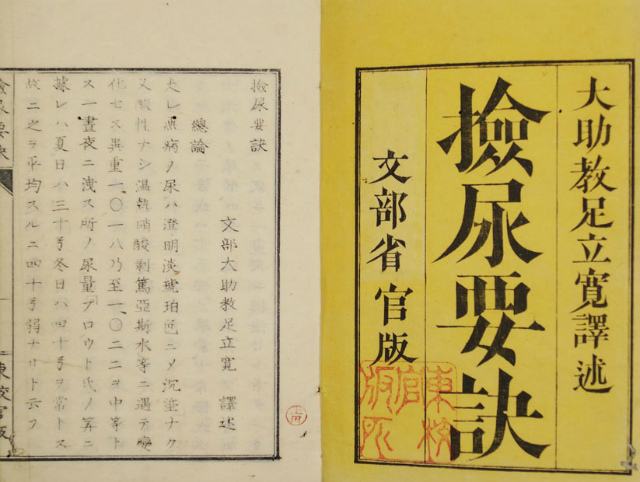 大助教足立寛譯述
撿尿要訣
文部省官版
東校
官
版所
撿尿要訣
文部大助教足立寛 譯述
總論
夫レ無病ノ尿ハ澄明淡琥珀色ニメ沉渣ナク
又酸性ナシ温 硝酸剥篤亞斯水等ニ遇テ變
化セス其重一、〇一八乃至一、〇二二ヲ中等ト
ス一晝夜ニ洩ス所ノ尿量プロウト氏ノ算ニ
據レハ夏日ハ三十号冬日ハ四十号ヲ常トス
故ニ之ヲ平均スルニ四十号 ナリト云フ
撿尿要訣
一 東校官版